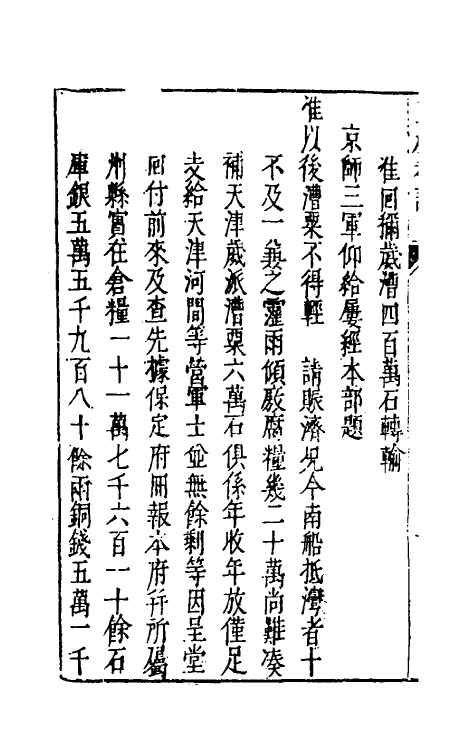 准回稱歲漕四百萬石轉輸
京師三軍仰給屢經本部題
准以後漕粟不得輕　請賑濟況今南船抵灣者十
不及一兼之霪雨傾廒腐糧幾二十萬尚難湊
補天津歲派漕粟六萬石俱係年收年放僅足
支給天津河間等營軍士並無餘剩等因呈堂
回付前來及查先據保定府冊報本府并所屬
州縣實在倉糧一十一萬七千六百一十餘石
庫銀五萬五千九百八十餘兩銅錢五萬一千